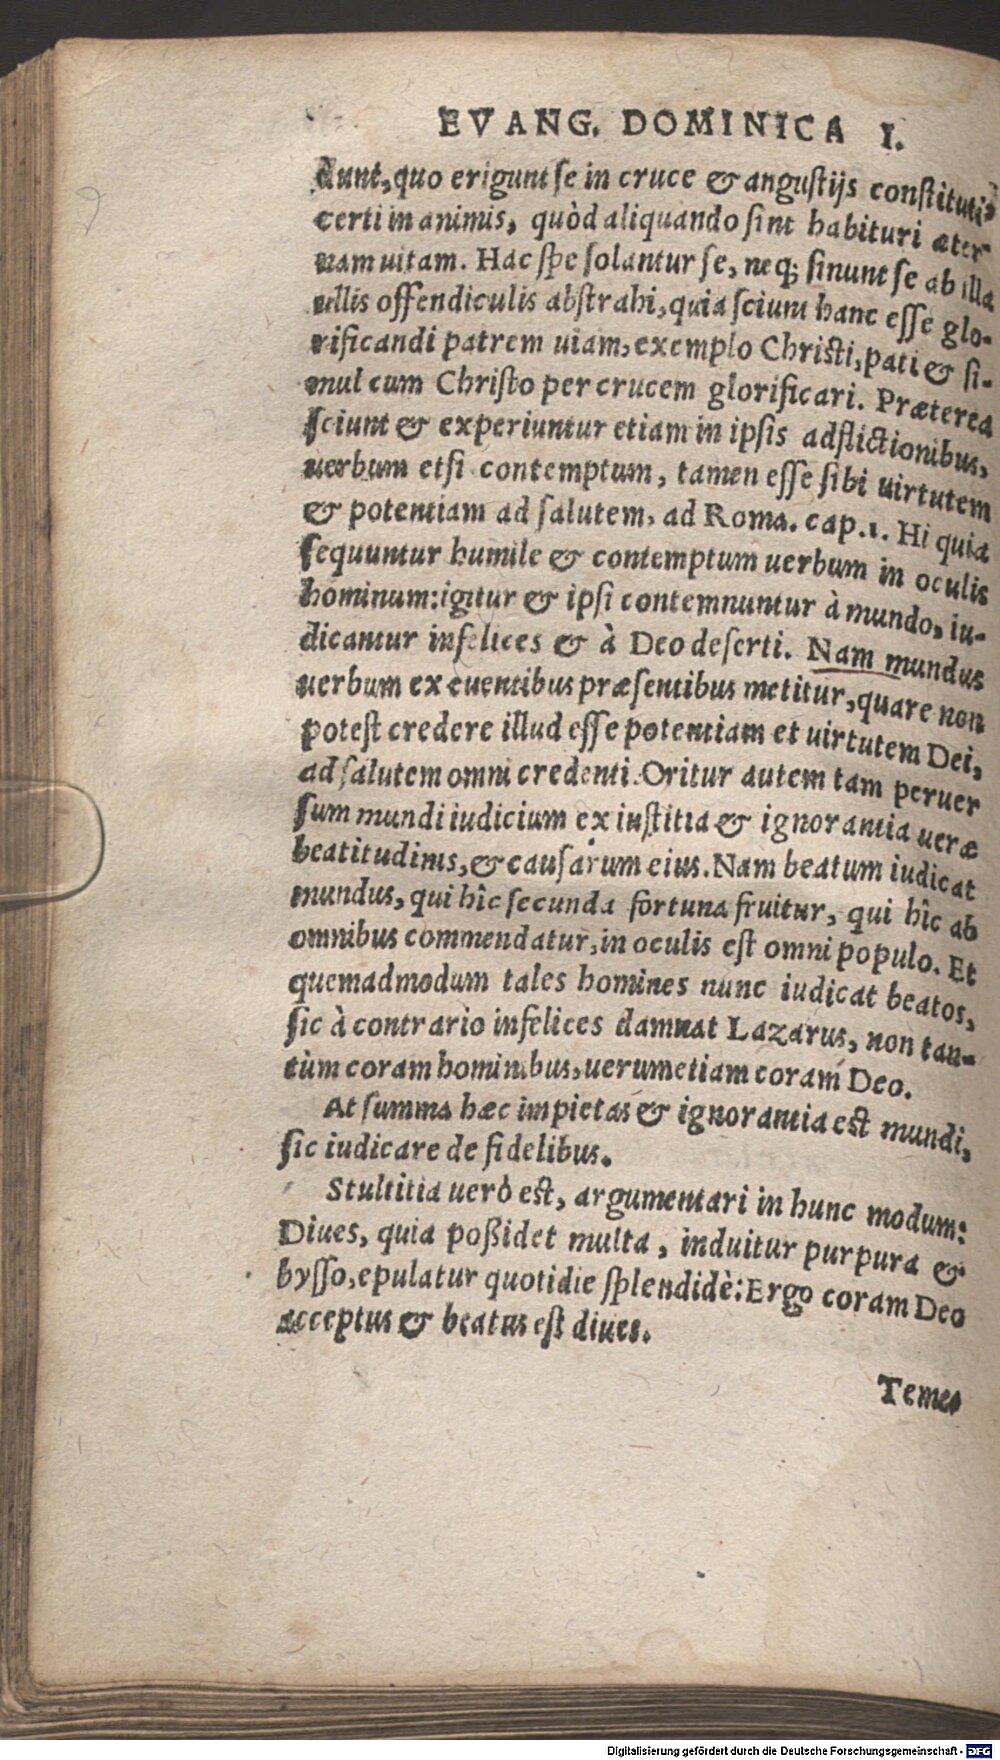 EVANG. DOMINICA I.
dunt, quo erigunt se in cruce & angustijs constituti,
certi in animis, quòd aliquando sint habituri æter
nam uitam. Hac spe solantur se, neq; sinunt se ab illa
ullis offendiculis abstrahi, quia sciunt hanc esse glo-
rificandi patrem uiam, exemplo Christi, pati & si-
mul cum Christo per crucem glorificari. Præterea
sciunt & experiuntur etiam in ipsis adflictionibus,
uerbum etsi contemptum, tamen esse sibi uirtutem
& potentiam ad salutem, ad Roma. cap.1. Hi quia
sequuntur humile & contemptum uerbum in oculis
hominum: igitur & ipsi contemnuntur à mundo, iu-
dicantur infelices & à Deo deserti. Nam mundus
uerbum ex euentibus præsentibus metitur, quare non
potest credere illud esse potentiam et uirtutem Dei,
ad salutem omni credenti. Oritur autem tam peruer
sum mundi iudicium ex iustitia & ignorantia ueræ
beatitudinis, & causarum eius. Nam beatum iudicat
mundus, qui hîc secunda fortuna fruitur, qui hîc ab
omnibus commendatur, in oculis est omni populo. Et
quemadmodum tales homines nunc iudicat beatos,
sic à contrario infelices damnat Lazarus, non tan-
tùm coram hominibus, uerumetiam coram Deo.
At summa hæc impietas & ignorantia est mundi,
sic iudicare de fidelibus.
Stultitia uerò est, argumentari in hunc modum:
Diues, quia poßidet multa, induitur purpura &
bysso, epulatur quotidie splendidè: Ergo coram Deo
acceptus & beatus est diues.
Teme
Digitalisierung gefördert durch die Deutsche Forschungsgemeinschaft - DFG